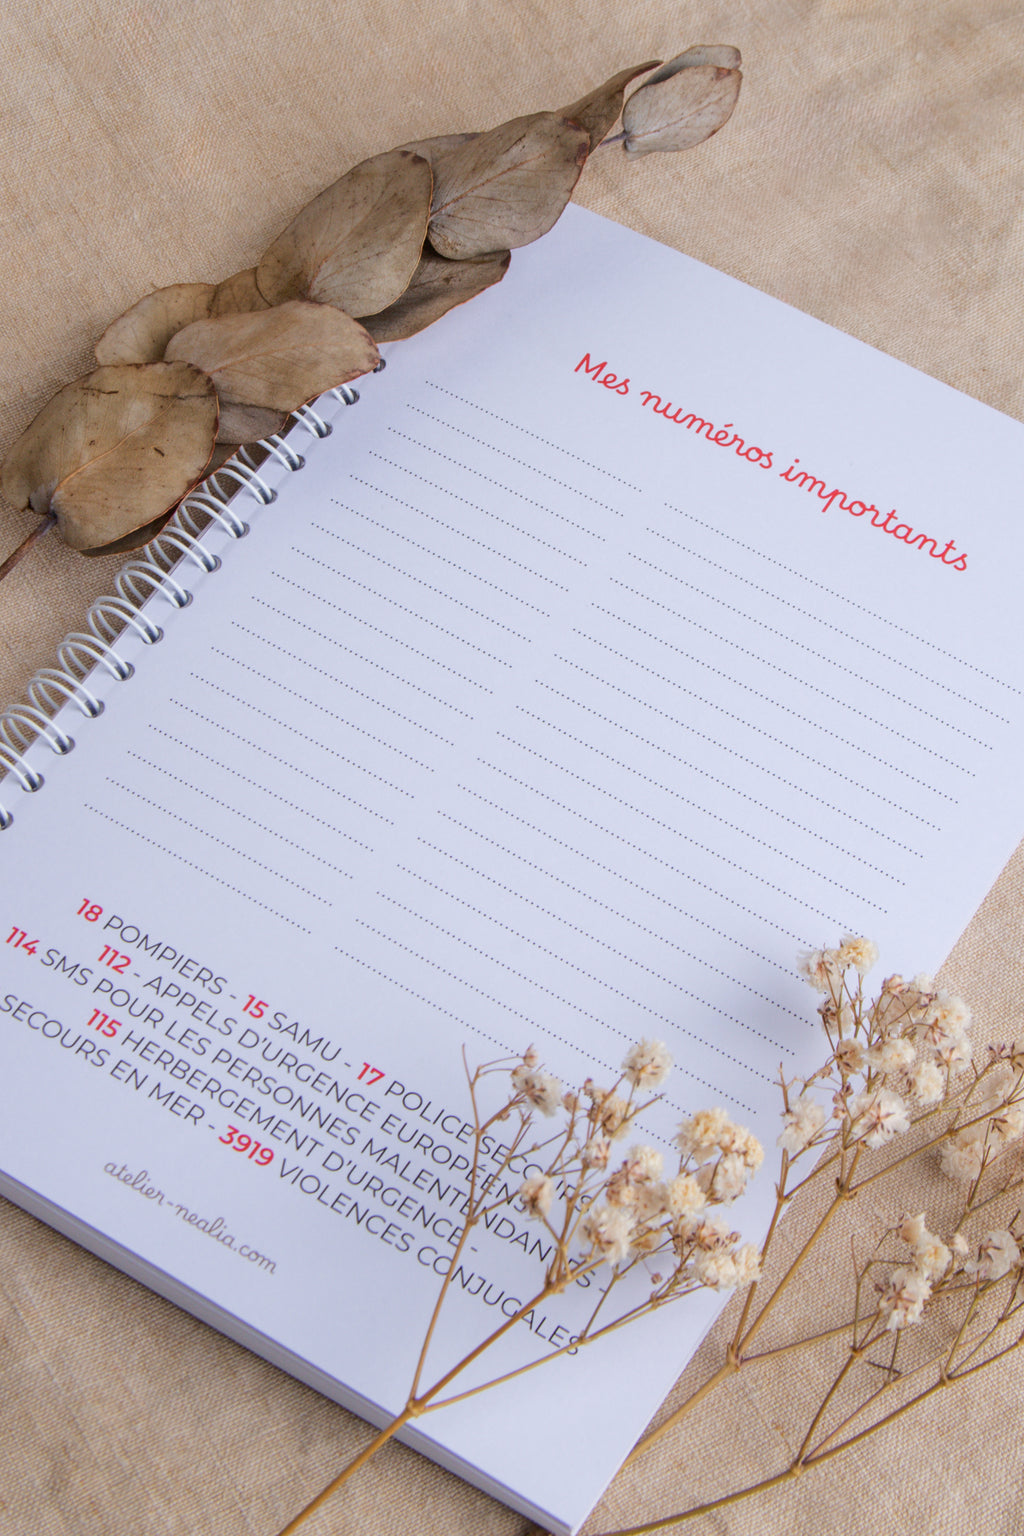 Mes numéros importants
18 POMPIERS - 15 SAMU - 17 POLICE SECOURS
112 - APPELS D'URGENCE EUROPÉENS
114 SMS POUR LES PERSONNES MALENTENDANTES -
115 HERBERGEMENT D'URGENCE -
SECOURS EN MER - 3919 VIOLENCES CONJUGALES
atelier-nealia.com